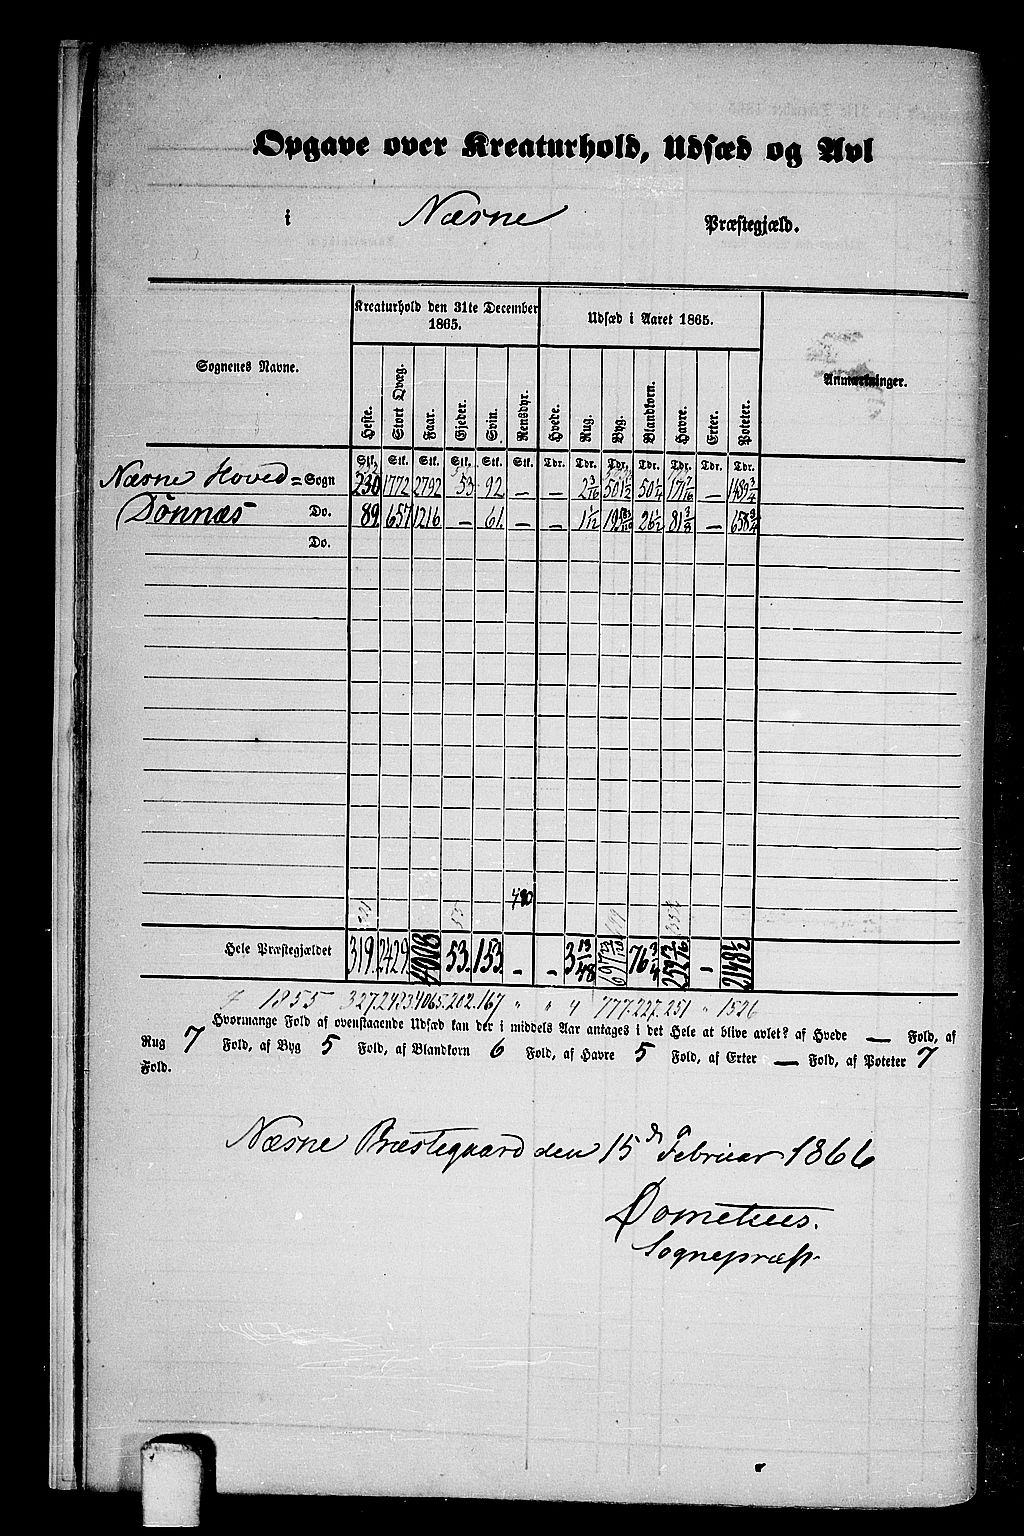 Opgave over Kreaturhold, Udsæd og Avl
i Næsne Præstegjæld.
Kreaturhold den 31te December 1865.
Udsæd i Aaret 1865.
Sognenes Navne.
Anmærkninger.
Heste. Stort Qvæg. Faar. Gjeder. Svin. Rensdyr. Hvede. Rug. Byg. Blandkorn. Havre. Erter. Poteter.
Stk. Stk. Stk. Stk. Stk. Stk. Tdr. Tdr. Tdr. Tdr. Tdr. Tdr. Tdr.
Næsne Hoved= Sogn 230 1772 2792 53 92 — — 2 3/16 501 1/2 50 1/4 171 7/16 — 1489 3/4
Dønnæs Do. 89 657 1216 — 61 — — 1 1/12 26 1/2 81 3/8 — 658 3/4
Do.
Hele Præstegjældet 319. 2429. 4008 53. 153. — — 3 13/48 76 3/4 — 2148 1/2
1855 327. 2423. 4065. 202. 167 " " 4 777. 227. 251 " 1526
Hvormange Fold af ovenstaaende Udsæd kan der i middels Aar antages i det Hele at blive avlet? af Hvede — Fold, af
Rug 7 Fold, af Byg 5 Fold, af Blandkorn 6 Fold, af Havre 5 Fold, af Erter — Fold, af Poteter 7
Fold.
Næsne Præstegaard den 15de Februar 1866
Sognepræst